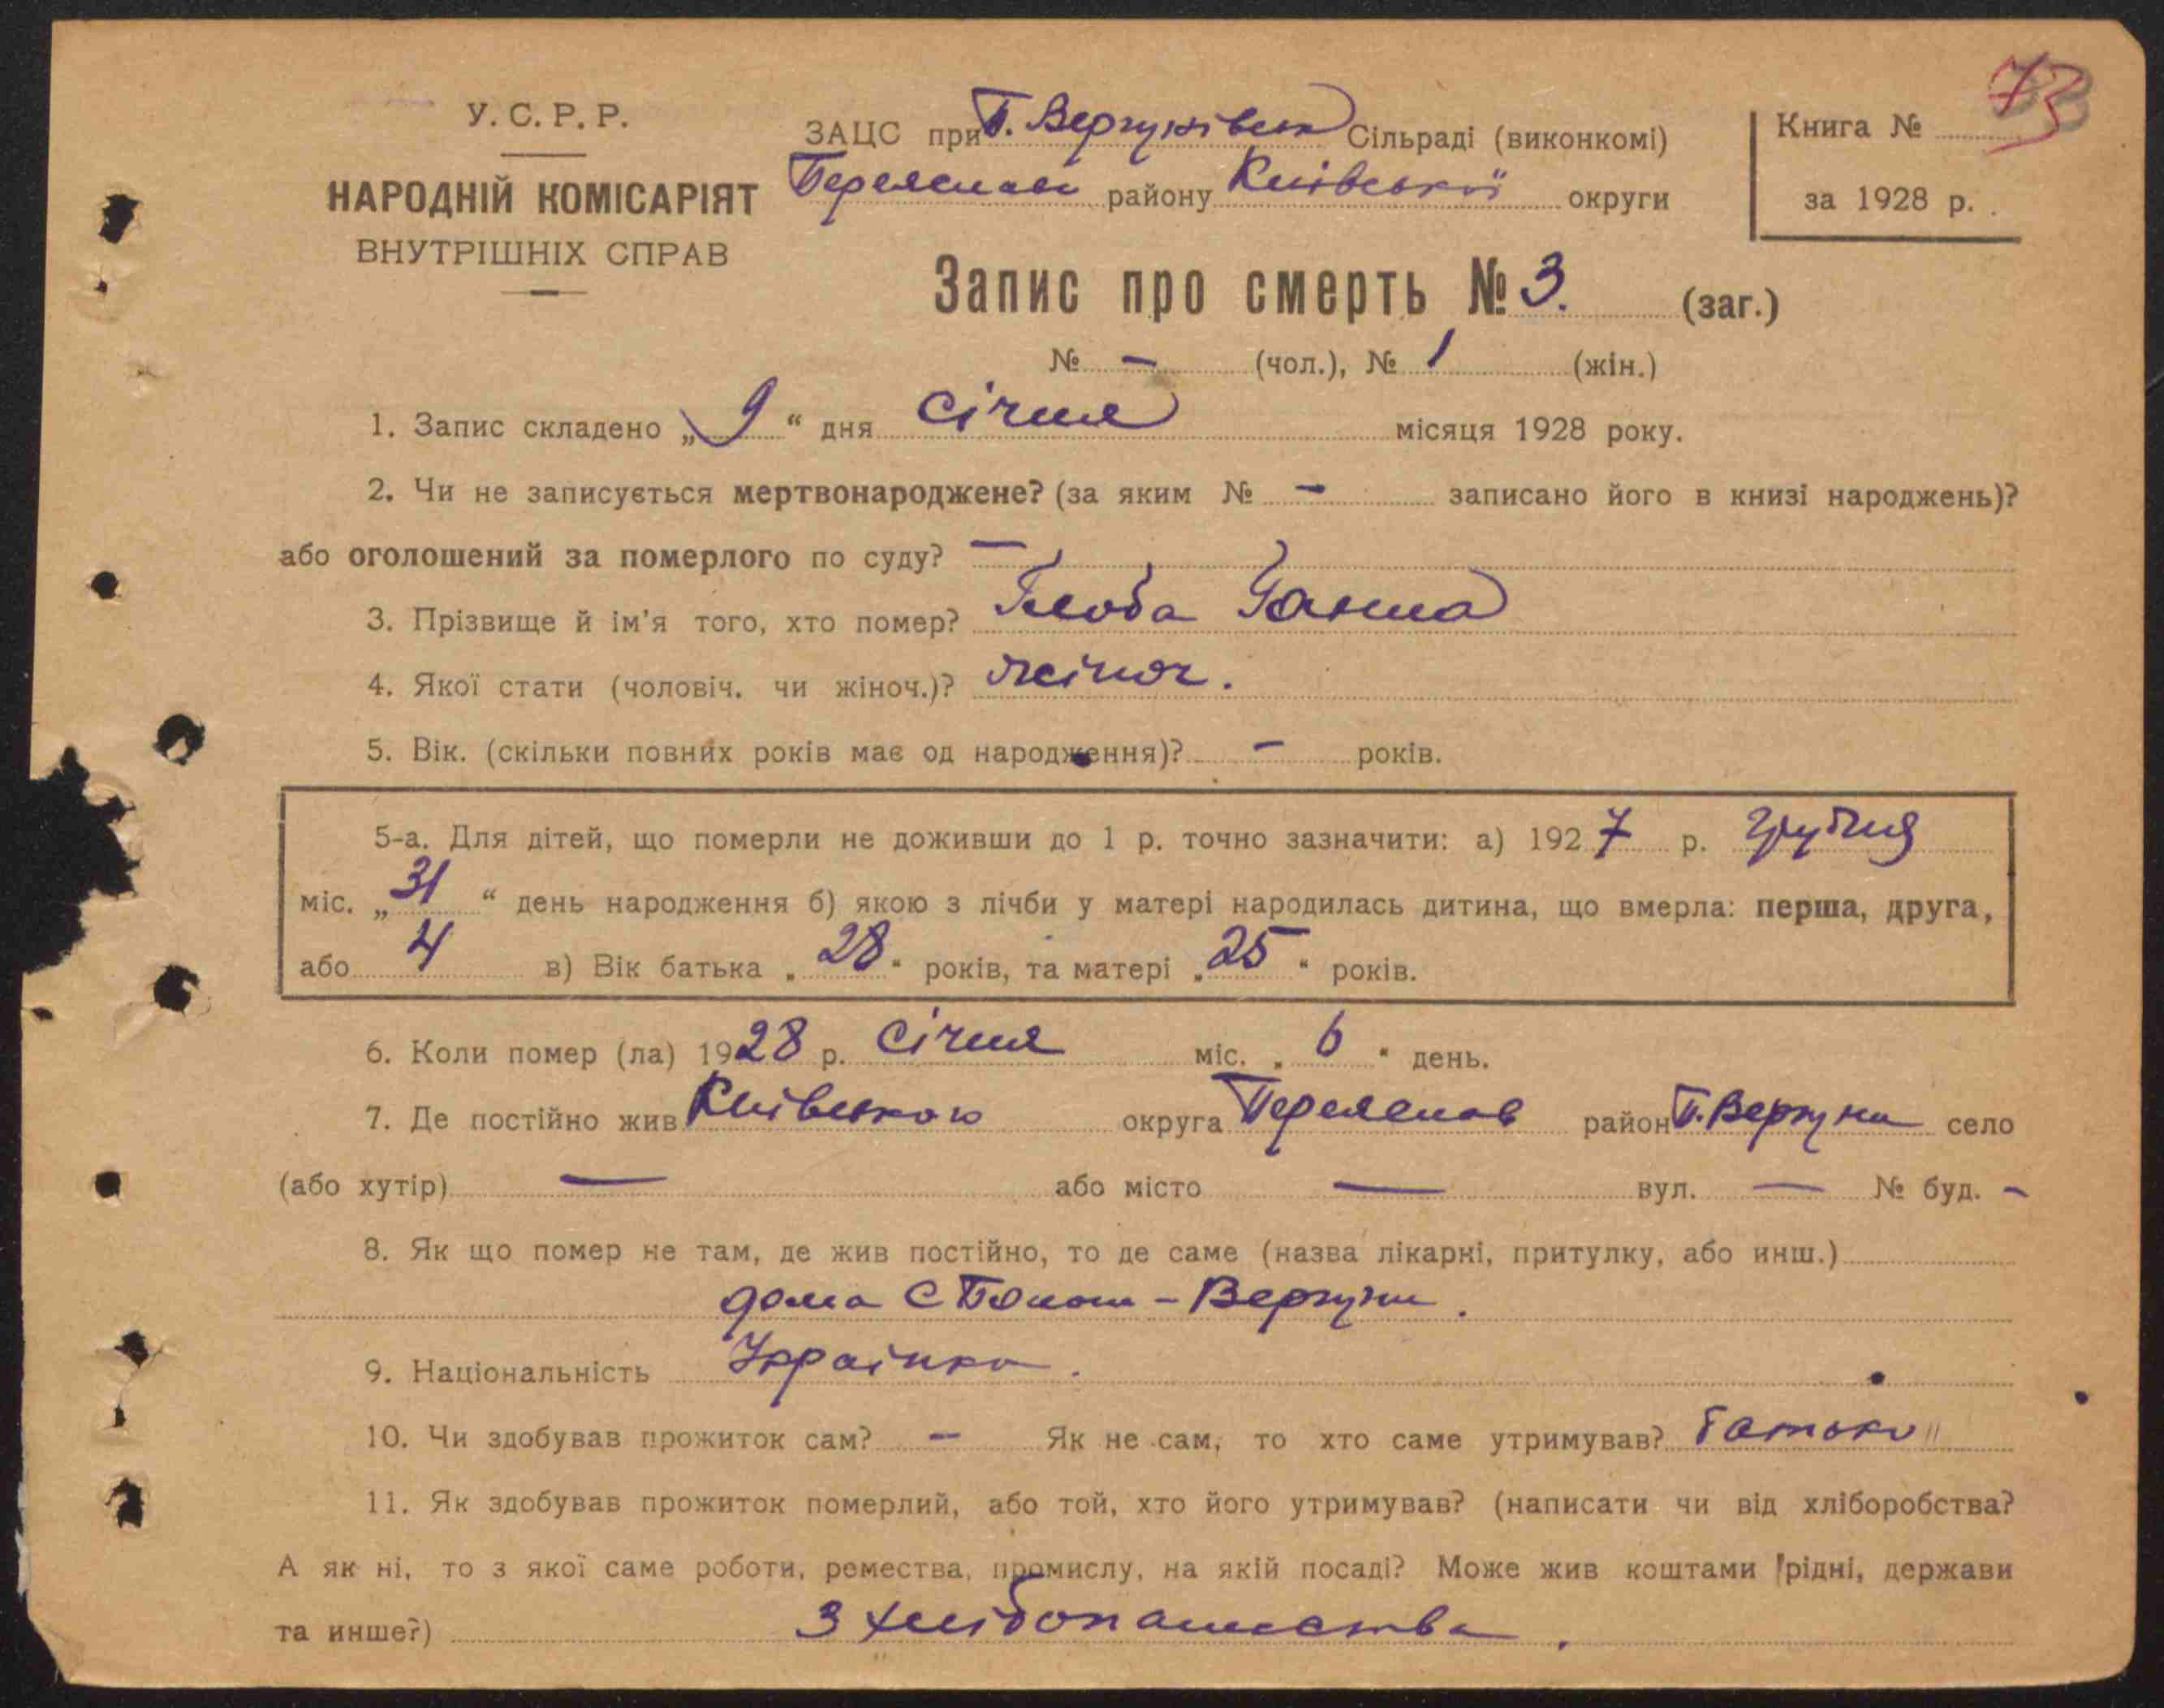 У. С. Р. Р.
НАРОДНІЙ КОМІСАРІЯТ
ВНУТРІШНІХ СПРАВ
ЗАЦС при П. Вергунівськ Сільраді (виконкомі)
Переяслав району Київської округи
Книга № 73
за 1928 р.
Запис про смерть № 3. (заг.)
№ — (чол.), № 1 (жін.)
1. Запис складено „ 9 “ дня Січня місяця 1928 року.
2. Чи не записується мертвонароджене? (за яким № — записано його в книзі народжень)?
або оголошений за померлого по суду? —
3. Прізвище й ім'я того, хто помер? Глоба Ганна
4. Якої стати (чоловіч. чи жіноч.)? жіноч.
5. Вік. (скільки повних років має од народження)? — років.
5-а. Для дітей, що померли не доживши до 1 р. точно зазначити: а) 1927 р. грудня
міс. „ 31 “ день народження б) якою з лічби у матері народилась дитина, що вмерла: перша, друга,
або 4 в) Вік батька „ 28 “ років, та матері „ 25 “ років.
6. Коли помер (ла) 1928 р. Січня міс. „ 6 “ день.
7. Де постійно жив Київською округа Переяслав район П. Вергуни село
(або хутір) — або місто — вул. — № буд. —
8. Як що помер не там, де жив постійно, то де саме (назва лікарні, притулку, або инш.)
дома С - Вергуни.
9. Національність Українка.
10. Чи здобував прожиток сам? — Як не сам, то хто саме утримував? батьки
11. Як здобував прожиток померлий, або той, хто його утримував? (написати чи від хліборобства?
А як ні, то з якої саме роботи, ремества, промислу, на якій посаді? Може жив коштами рідні, держави
та инше?) З хлібопашества.